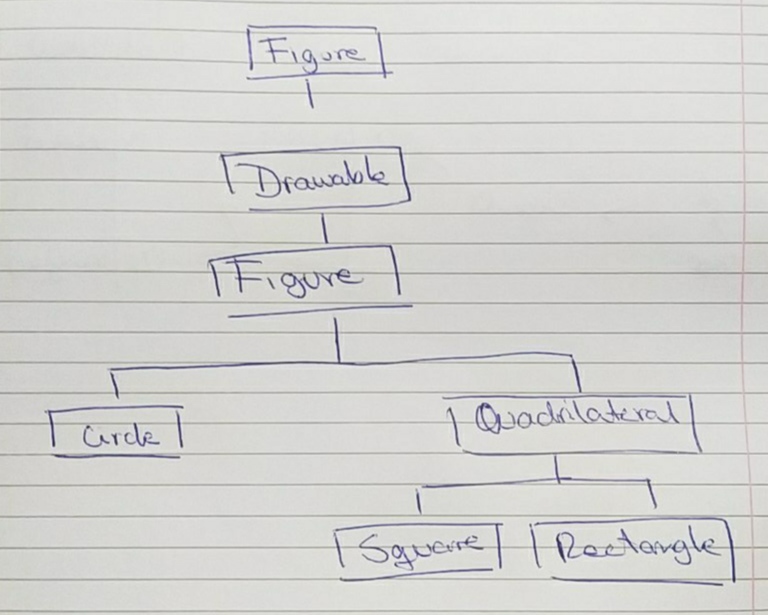 Figure
Drawable
Figure
Circle Quadrilateral
Square Rectangle